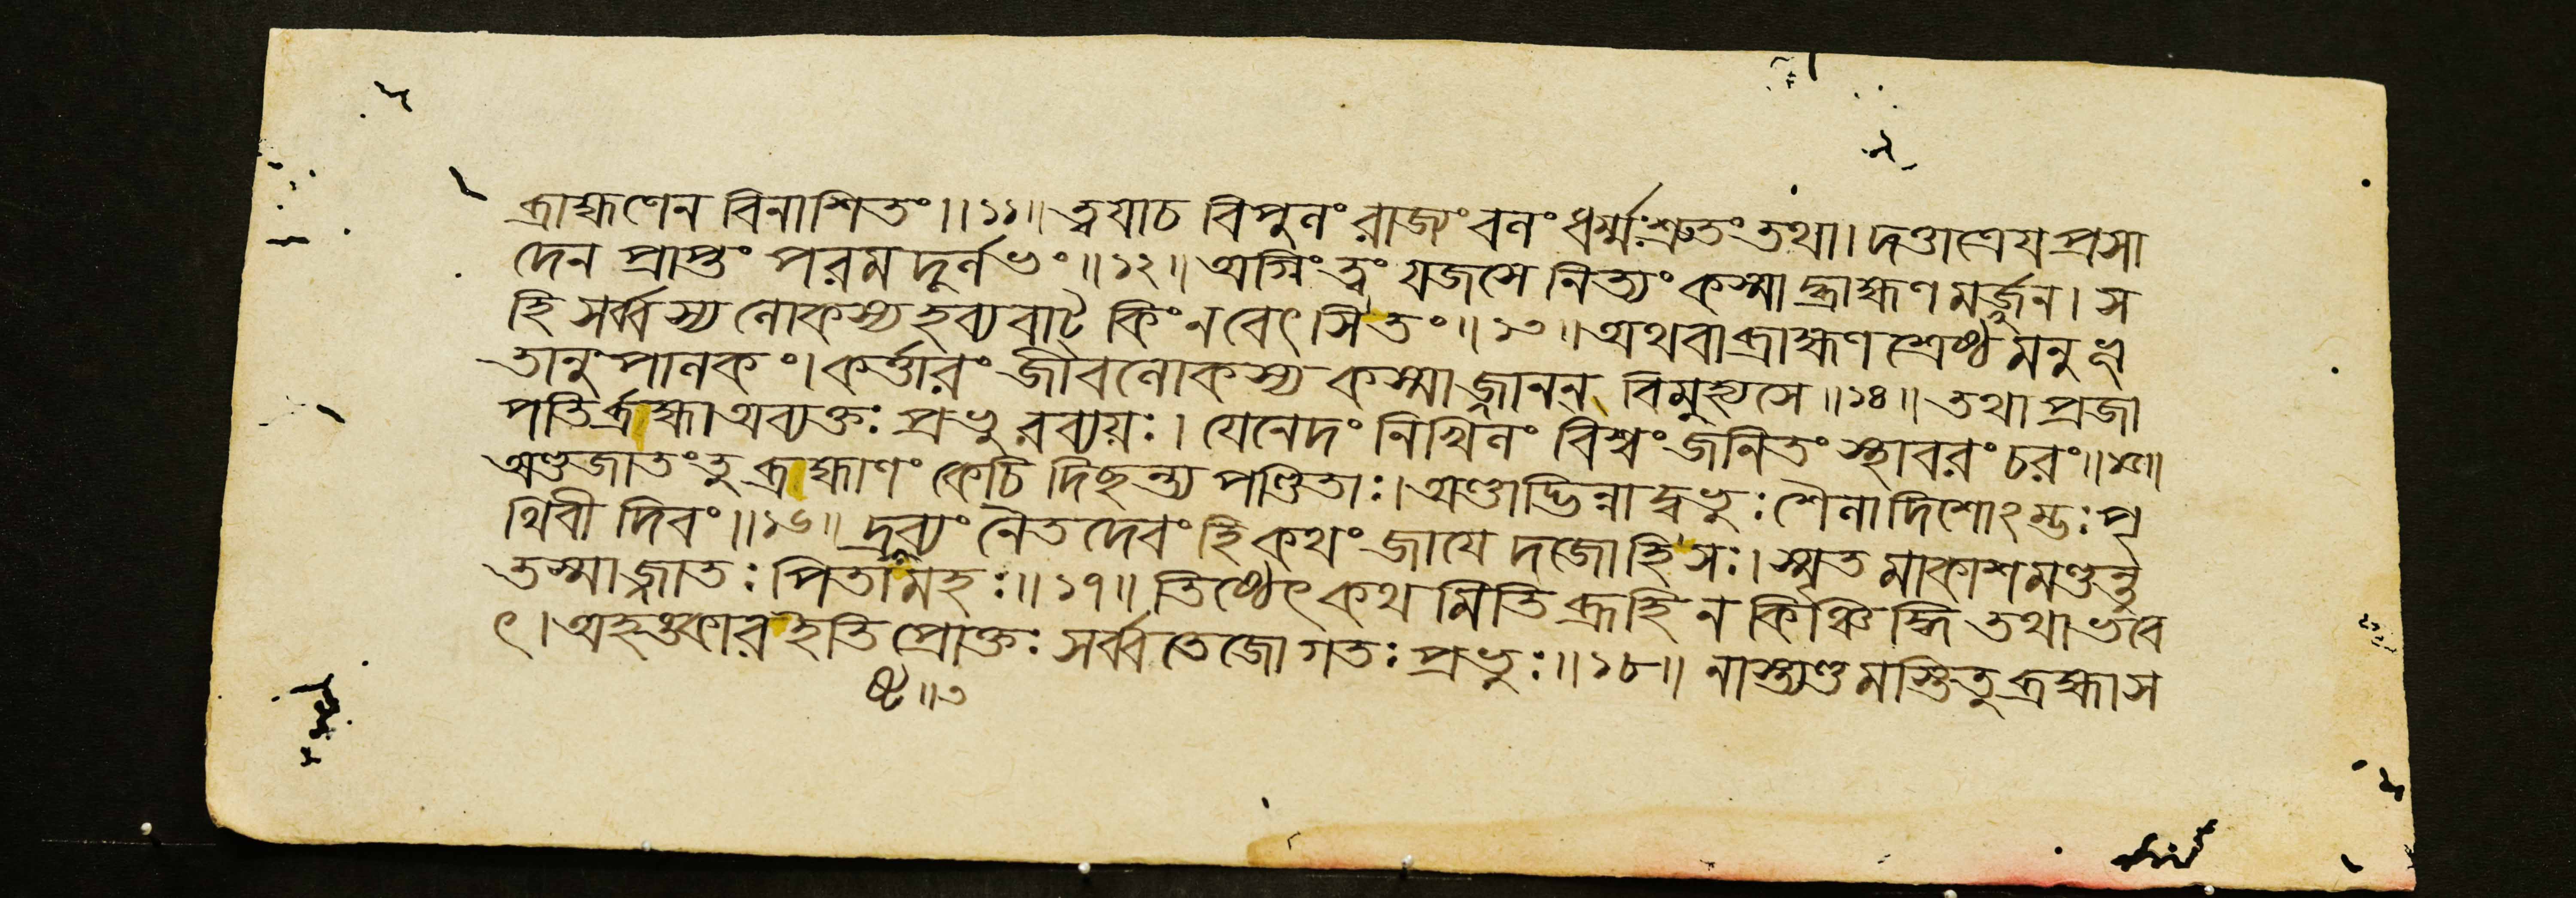 ব্রাহ্মণেন বিনাশিতং॥১১॥ ত্বযাচ বিপুলং রাজ্যং বলং ধর্ম্মঃশ্রুতং তথা। দত্তাত্রেয প্রসা
দেন প্রাপ্তং পরম দুর্লভং॥১২॥ অগ্নিং ত্বং যজসে নিত্যং কস্মাদ্ব্রাহ্মণ মর্জ্জুন। স
হি সর্ব্বস্য লোকস্য হব্যবাট্ কিং নবেৎসি তং॥১৩॥ অথবা ব্রাহ্মণ শ্রেষ্ঠ মনু ভূ
তানু পালকং। কর্ত্তারং জীবলোকস্য কস্মাজ্জানন্ বিমুহ্যসে॥১৪॥ তথা প্রজা
পতির্ব্রহ্মা অব্যক্তঃ প্রভু রব্যয়ঃ। যেনেদং নিখিলং বিশ্বং জনিতং স্থাবরং চরং॥১৫॥
অণ্ডজাতং তু ব্রহ্মাণং কেচি দিছন্ত্য পণ্ডিতাঃ। অণ্ডাদ্ভিন্নাদ্বভুঃ শৈলাদিশোংম্ভঃ পৃ
থিবী দিবং॥১৬॥ দ্রব্যং নৈত দেবং হি কথং জাযে দজো হি সঃ। স্মৃত মাকাশমণ্ডন্তু
তস্মাজ্জাতঃ পিতামহঃ॥১৭॥ তিষ্ঠেৎ কথ মিতি ব্রূহি ন কিঞ্চিদ্ধি তথা ভবে
ৎ। অহঙ্কার ইতি প্রোক্তঃ সর্ব্ব তেজো গতঃ প্রভুঃ॥১৮॥ নাস্ত্যণ্ড মস্তি তু ব্রহ্মা স